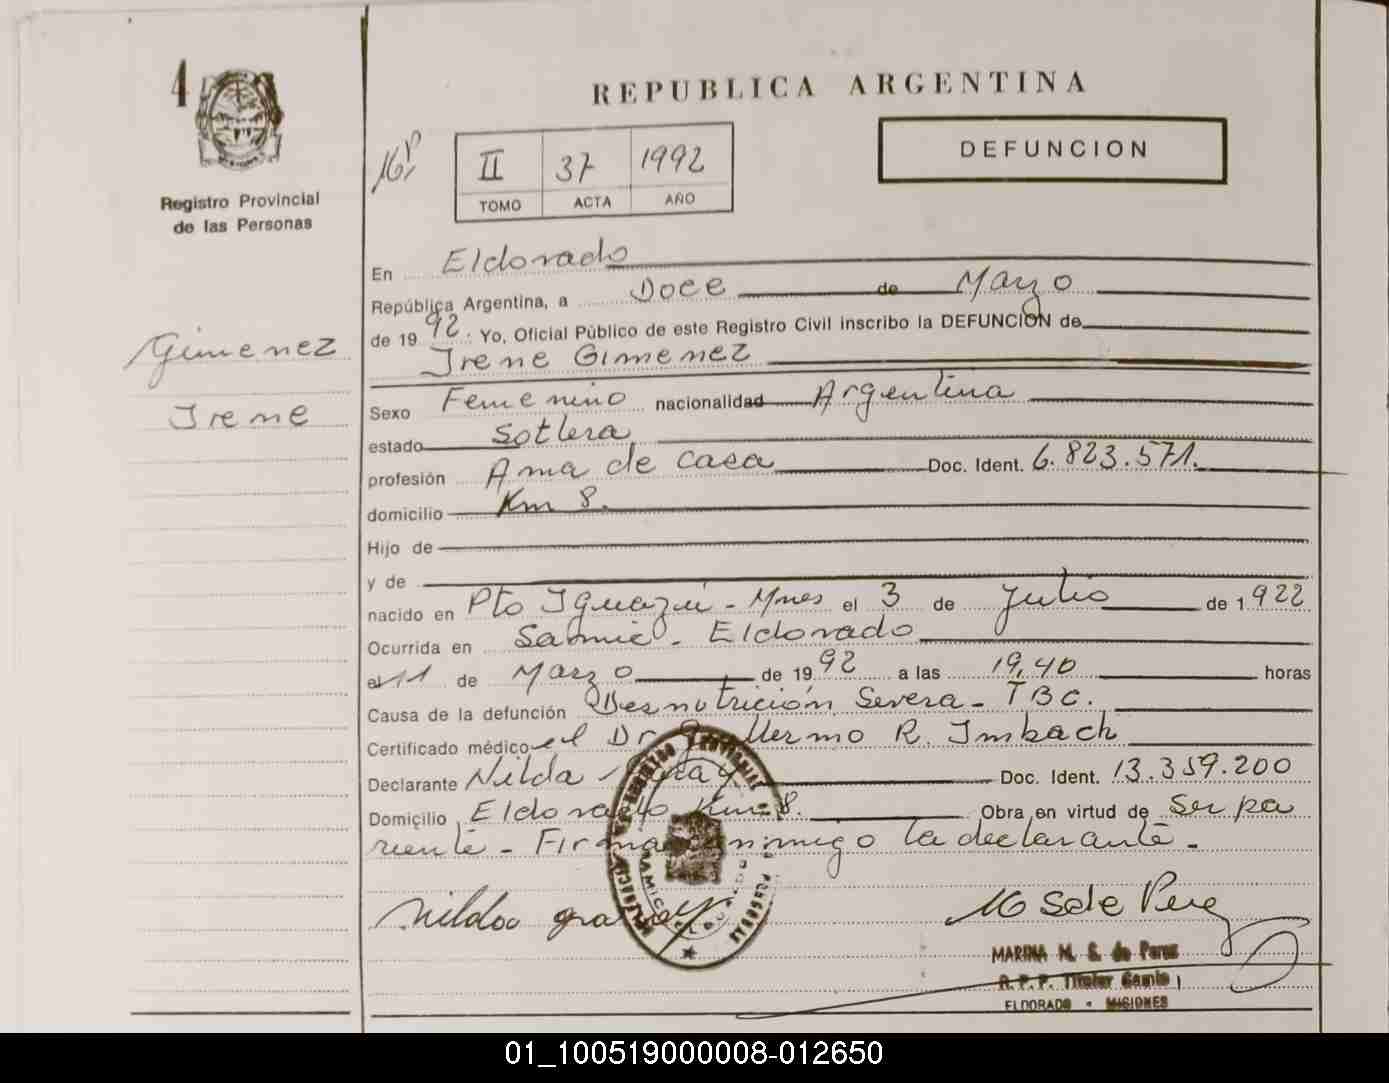 4
REPUBLICA ARGENTINA
Registro Provincial
de las Personas
II 37 1992
TOMO ACTA AÑO
DEFUNCION
Gimenez
Irene
En Eldorado
República Argentina, a Doce de Marzo
de 1992. Yo, Oficial Público de este Registro Civil inscribo la DEFUNCION de
Irene Gimenez
Sexo Femenino nacionalidad Argentina
estado Soltera
profesión Ama de casa Doc. Ident. 6.823.571.
domicilio Km 8.
Hijo de
y de
nacido en Pto Iguazú - Mnes el 3 de Julio de 1922
Ocurrida en Samic - Eldorado
el 11 de Marzo de 1992 a las 19,40 horas
Causa de la defunción Desnutrición Severa - TBC.
Certificado médico el Dr. Guillermo R. Imbach
Declarante Nilda Doc. Ident. 13.359.200
Domicilio Eldorado Km 8. Obra en virtud de Ser pa
riente - Firma conmigo la declarante.
MARINA M. S. de Perez
R. P. P. Titular Samic
ELDORADO - MISIONES
01_100519000008-012650